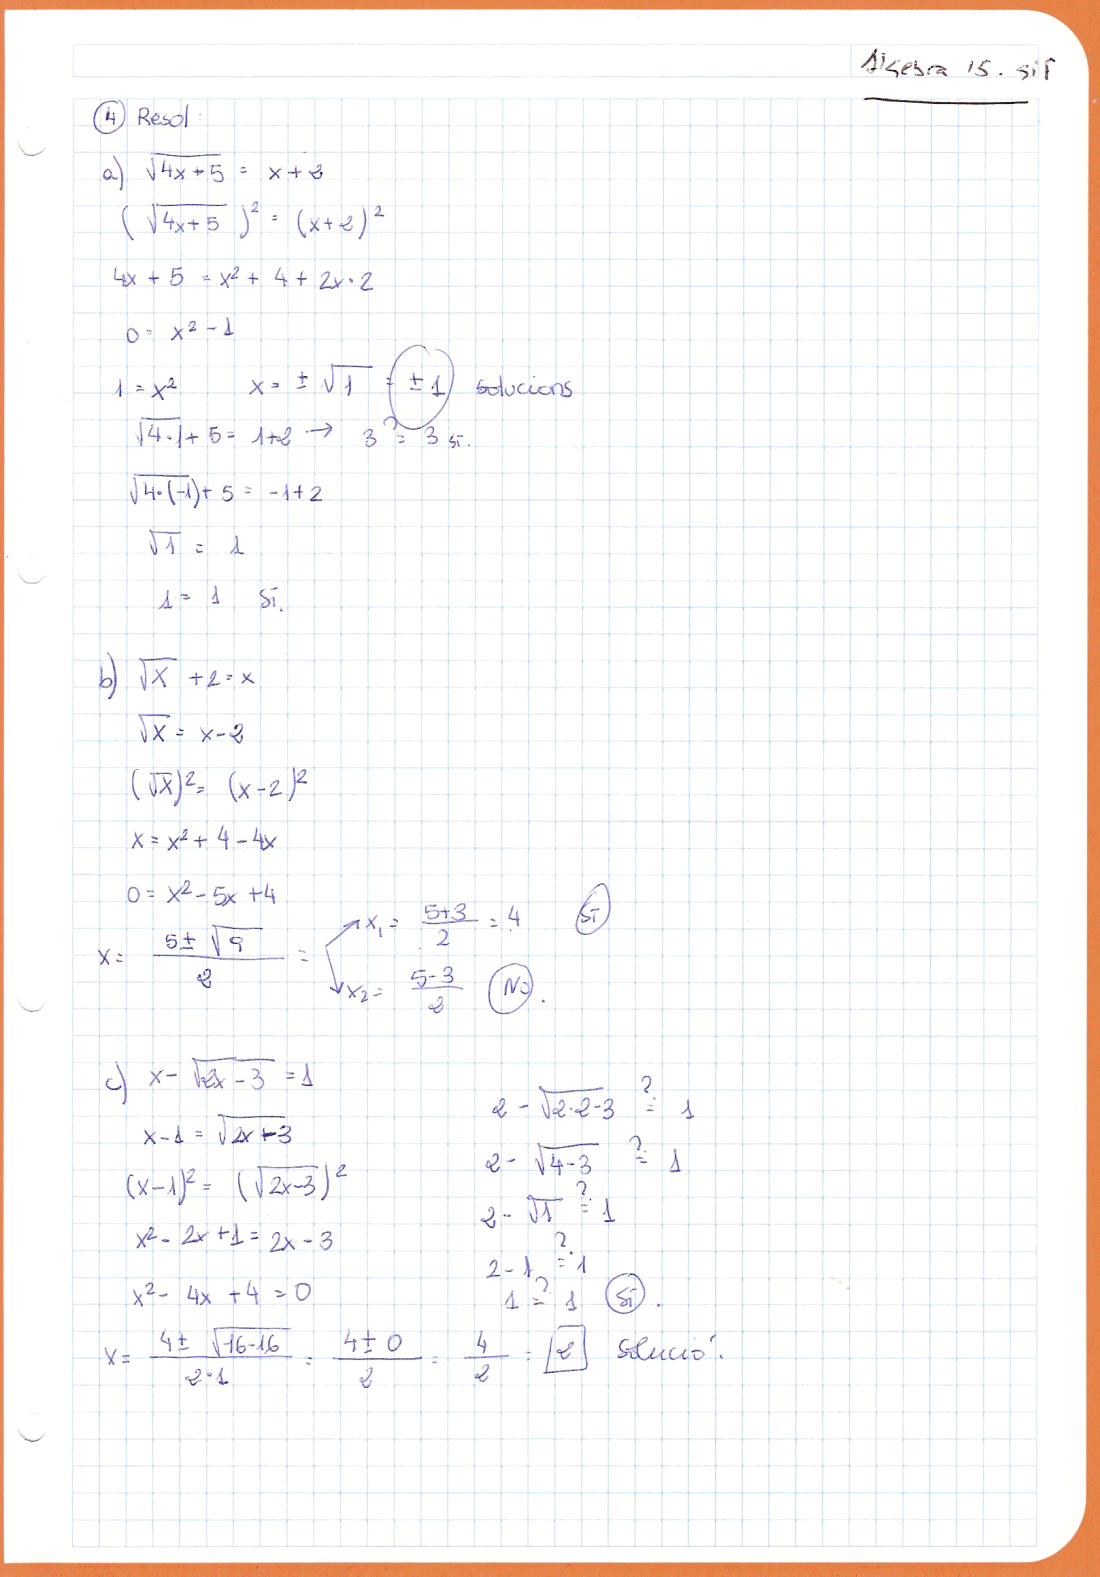 Algebra 15. gif
④ Resol:
a) √(4x+5) = x+2
(√(4x+5))² = (x+2)²
4x + 5 = x² + 4 + 2x·2
0 = x² - 1
1 = x²   x = ± √1 = ±1 solucions
√4·1 + 5 = 1+2 → 3 ?= 3 sí.
√4·(-1) + 5 = -1+2
√1 = 1
1 = 1 Sí.
b) √x + 2 = x
√x = x-2
(√x)² = (x-2)²
x = x² + 4 - 4x
0 = x² - 5x + 4
x = (5 ± √9)/2 =
x₁ = (5+3)/2 = 4 Sí
x₂ = (5-3)/2 No.
c) x - √(2x-3) = 1
x-1 = √(2x-3)
(x-1)² = (√(2x-3))²
x² - 2x + 1 = 2x - 3
x² - 4x + 4 = 0
x = (4 ± √(16-16))/(2·1) = (4 ± 0)/2 = 4/2 = 2 Solució.
2 - √(2·2-3) ?= 1
2 - √(4-3) ?= 1
2 - √1 ?= 1
2 - 1 ?= 1
1 ?= 1 Sí.